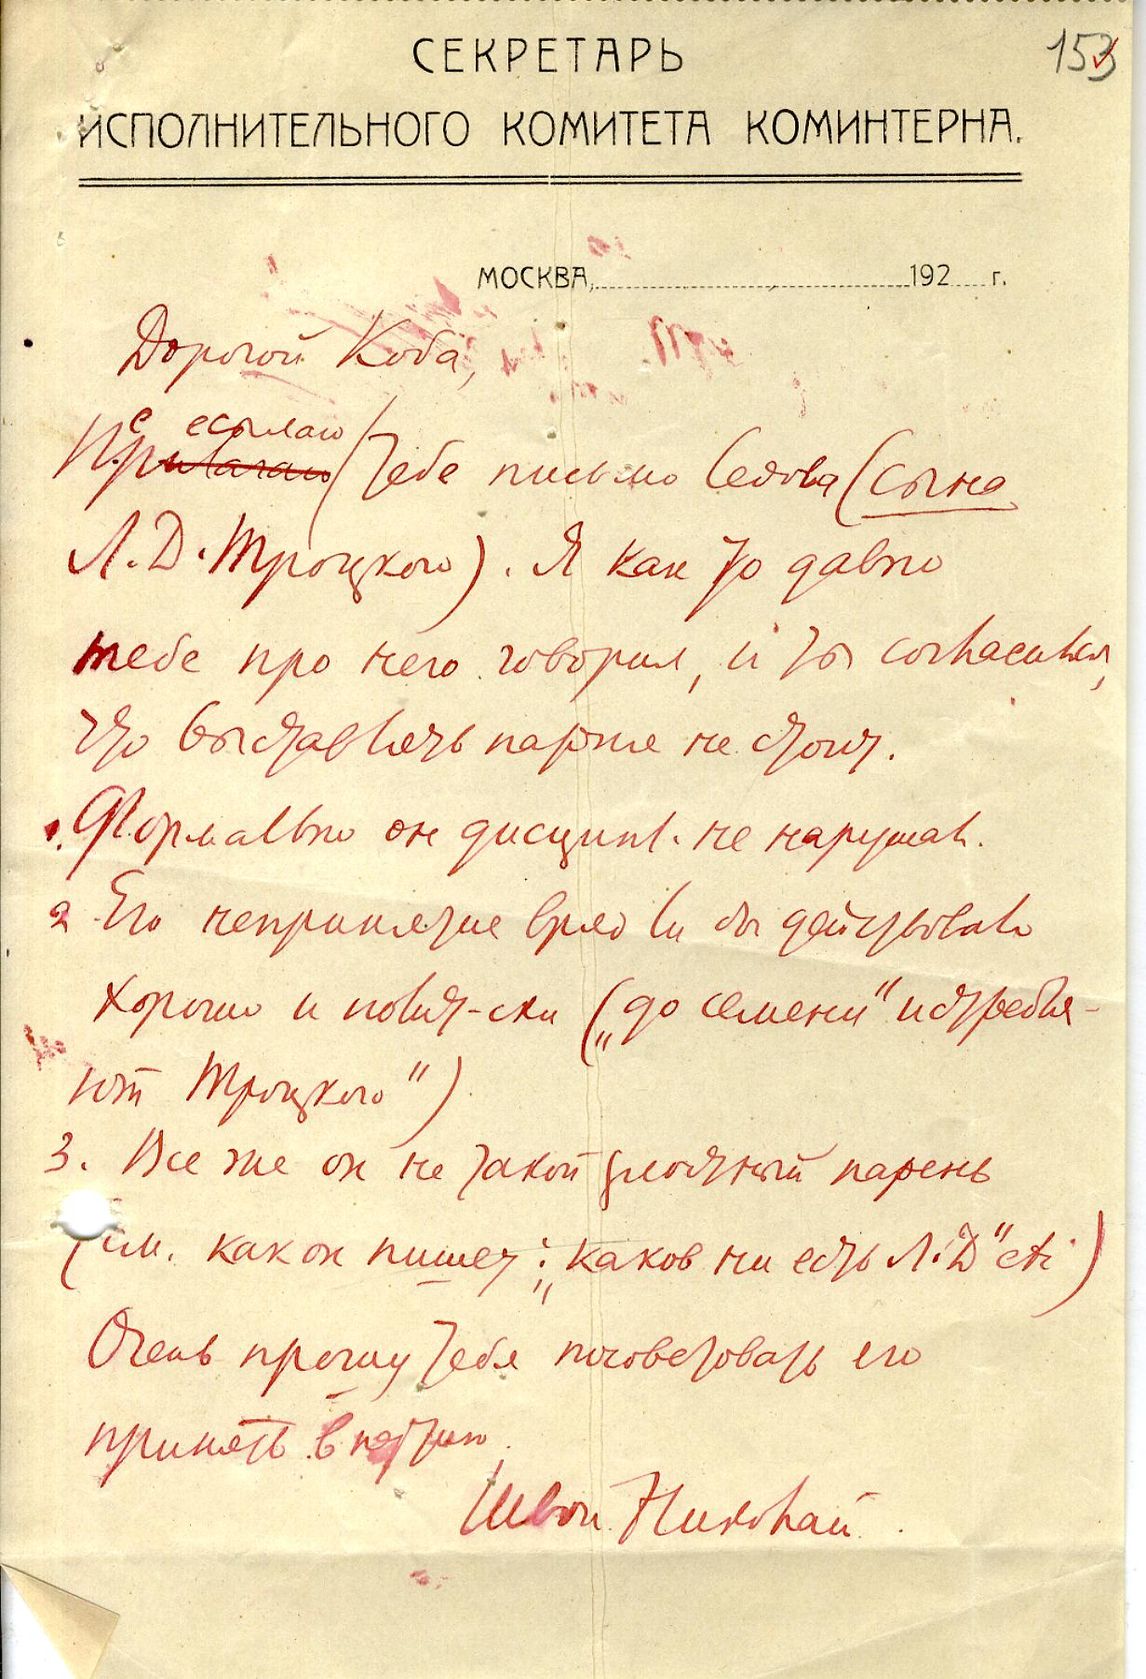 153
СЕКРЕТАРЬ
ИСПОЛНИТЕЛЬНОГО КОМИТЕТА КОМИНТЕРНА.
МОСКВА, 192 г.
Дорогой Коба,
Пересылаю тебе письмо Седова (сына
Л.Д. Троцкого). Я как то давно
тебе про него говорил, и ты согласился,
что выставлять парня не стоит.
1. Формально он дисципл. не нарушал.
2 Его непринятие вряд ли бы действовало
хорошо и полит-ски („до семени" истребля-
ют Троцкого")
3. Все же он не такой парень
(см. как он пишет: „каков ни есть Л.Д" etc)
Очень прошу тебя посоветовать его
принять в партию.
Твой Николай.